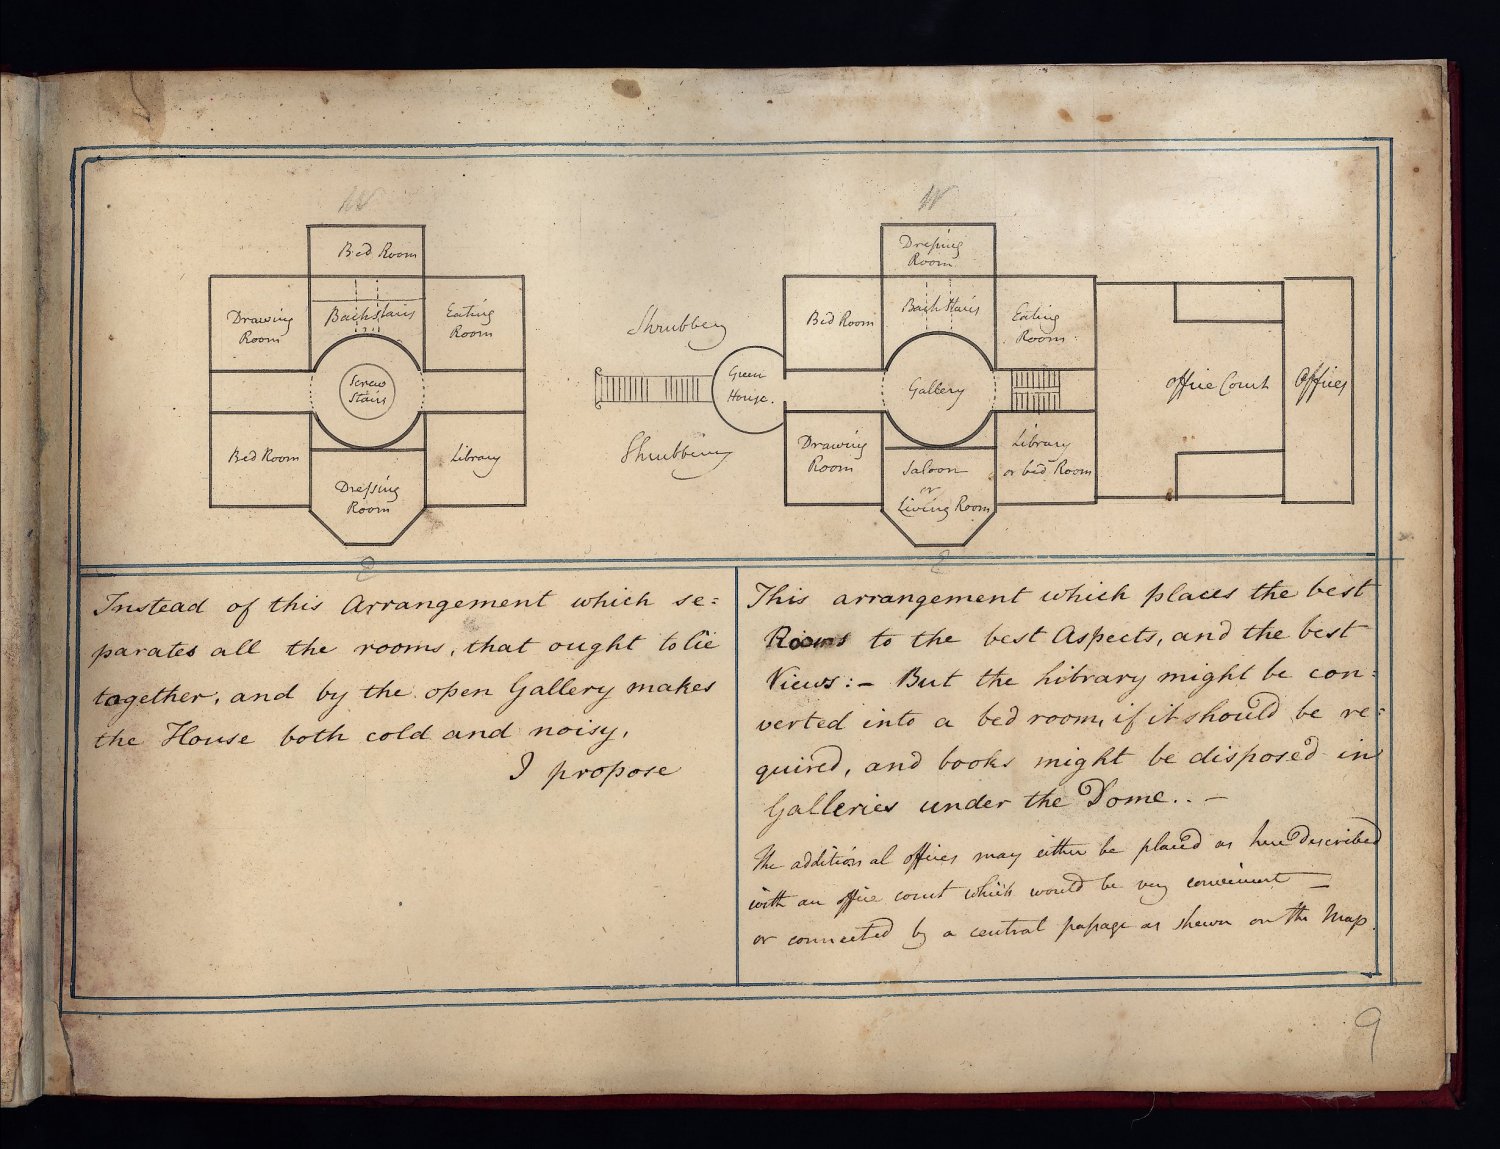 W
Bed Room
Drawing
Room
Back Stairs
Eating
Room
Screw
Stairs
Bed Room
Library
Dreſsing
Room
E
Shrubbery
Green
House.
Shrubbery
W
Dreſsing
Room
Bed Room
Back Stairs
Eating
Room
Gallery
Drawing
Room
Saloon
or
Living Room
Library
or bed Room
office Court
Offices
E
Instead of this Arrangement which se=
parates all the rooms, that ought to lie
together, and by the open Gallery makes
the House both cold and noisy,
I propose
This arrangement which places the best
Rooms to the best Aspects, and the best
Views:- But the Library might be con=
verted into a bed room, if it should be re=
quired, and books might be disposed in
Galleries under the Dome..-
The additional offices may either be placed as here described
with an office court which would be very convenient —
or connected by a central paſsage as shewn on the Map.
9